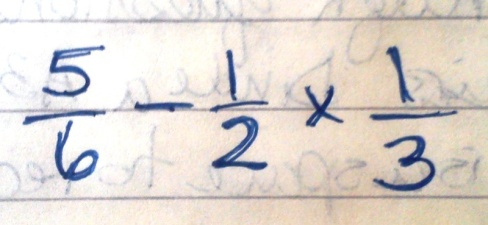 5/6 − 1/2 × 1/3